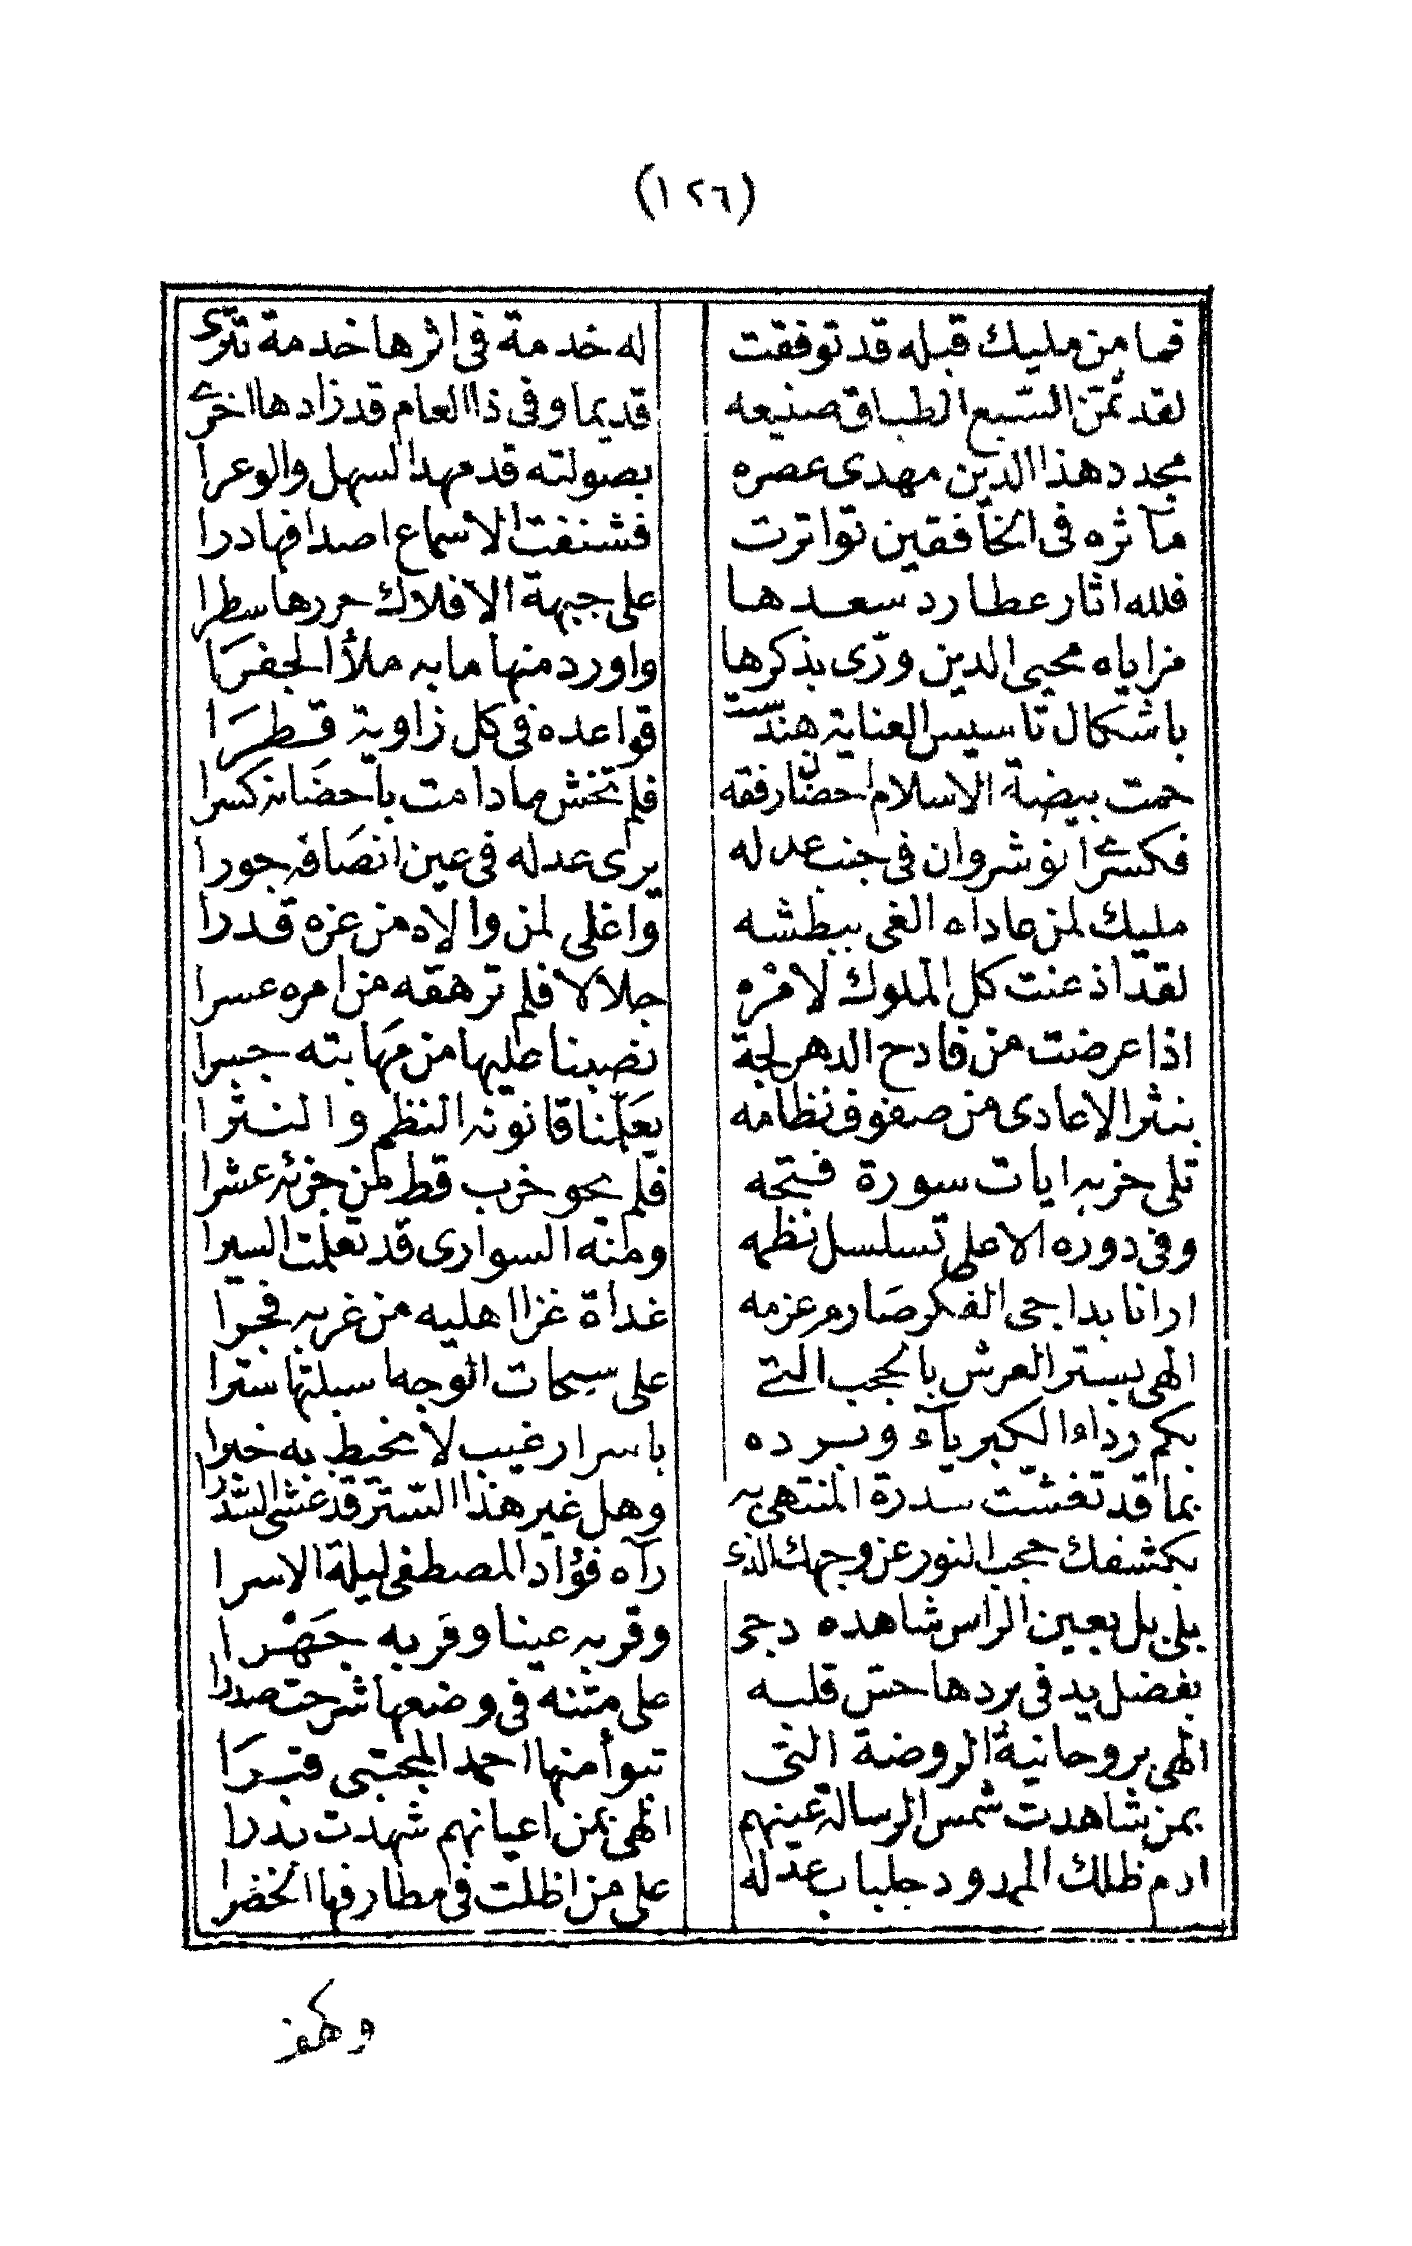 (١٢٦)
فما من مليك قبله قد توفقت له خدمة فى اثرها خدمة تترى
لقد ثمّن السّبع الطباق صنيعه قديما وفى ذا العام قد زادها اخرى
مجدد هذا الدين مهدى عصره بصولته قد مهد السهل والوعرا
مآثره فى الخافقين تواترت فشنفت الاسماع اصدافها درا
فلله اثار عطارد سعدها على جبهة الافلاك حررها سطرا
مزاياه محيى الدين ورّى بذكرها واورد منها ما به ملأ الجفرَا
باشكال تاسيس العناية هندست قواعده فى كل زاوية قطرَا
حمت بيضة الاسلام احضان رفقه فلم تخش مادامت باحضَانه كسرا
فكسرى انوشروان فى جنب عدله يرى عدله فى عين انصَافه جورا
مليك لمن عاداه الغى ببطشه واغلى لمن والاه من عزه قدرا
لقد اذعنت كل الملوك لامْره جلالا فلم ترهقه من امره عسرا
اذا عرضت من فادح الدهر لجة نصبنا عليها من مَهابته جسرا
بنثر الاعادى من صفوف نظامه يعَلّمنا قانونه النظم والنثرا
تلى حزبه ايات سورة فتحه فلم يحو حزب قط لمن حزبه عشرا
وفى دوره الاعلى تسلسل نظمه ومنه السوارى قد تعلمت السيرا
ارانا بداجى الفكر صَارم عزمه غداة غزا اهليه من غربه فجرا
الهى بستر العرش بالحجب التى على سبحات الوجه اسبلتها سترا
بكم رداء الكبرياء وبرده باسرار غيب لا نحيط به خبرا
بما قد تغشّت سدرة المنتهى به وهل غير هذا السّتر قد غشى السّدرا
بكشفك حجب النور عن وجهك الذى رآه فؤاد المصطفى ليلة الاسرا
بلى بل بعين الراس شاهده دجى وقر به عينا وقر به جَهْرا
بفضل يد فى بردها حسّ قلبه على متنه فى وضعها شرحت صدرا
الهى بروحانية الروضة التى تبوأ منها احمد المجتبى قبرَا
بمن شاهدت شمس الرسالة عينهم الهى بمن اعيانهم شهدت بدرا
ادم ظلك الممدود جلباب عدله على من اظلت فى مطارفها الخضرا
وكهف